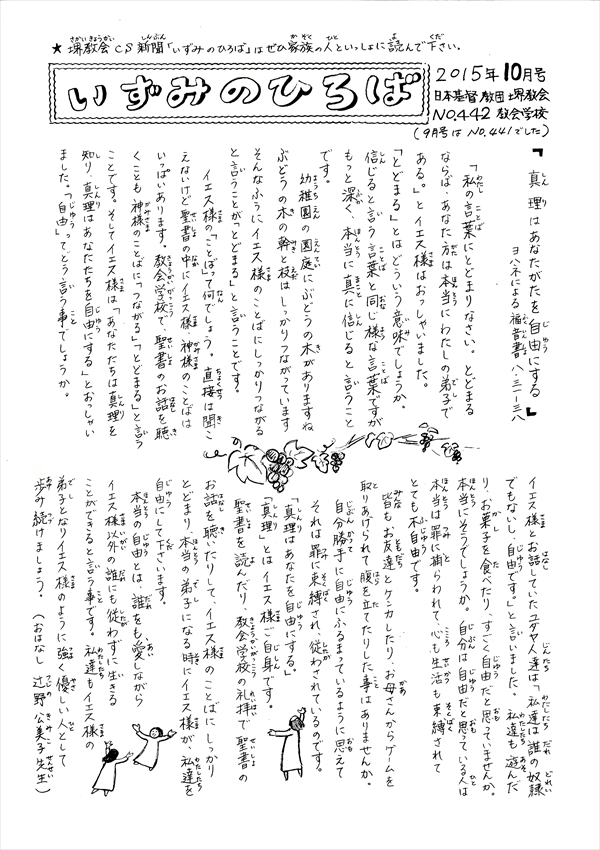 ★堺教会CS新聞「いずみのひろば」はぜひ家族の人といっしょに読んで下さい。
いずみのひろば
2015年10月号
日本基督教団堺教会
NO.442 教会学校
(9月号はNO.441でした)
「真理はあなたがたを自由にする」
ヨハネによる福音書八・三一―三八
「私の言葉にとどまりなさい。とどまる
ならば、あなた方は本当にわたしの弟子で
ある。」とイエス様はおっしゃいました。
「とどまる」とはどういう意味でしょうか。
信じると言う言葉と同じ様な言葉ですが
もっと深く、本当に真に信じると言うこと
です。
幼稚園の園庭にぶどうの木がありますね
ぶどうの木の幹と枝はしっかりつながっています
そんなふうにイエス様のことばにしっかりつながる
と言うことが「とどまる」と言うことです。
イエス様の「ことば」って何でしょう。直接は聞こ
えないけど聖書の中にイエス様、神様のことばは
いっぱいあります。教会学校で、聖書のお話を聴
くことも神様のことばに「つながる」「とどまる」と言う
ことです。そしてイエス様は「あなたたちは真理を
知り、真理はあなたたちを自由にする」とおっしゃい
ました。「自由」って、どう言う事でしょうか。
イエス様とお話していたユダヤ人達は「私達は誰の奴隷
でもないし、自由です。」と言いました。私達も遊んだ
り、お菓子を食べたり、すごく自由だと思っていませんか。
本当にそうでしょうか。自分は自由だと思っている人は
本当は罪に捕らわれて、心も生活も束縛されて
とても不自由です。
皆も、お友達とケンカしたり、お母さんからゲームを
取りあげられて腹を立てたりした事はありませんか。
自分勝手に自由にふるまっているように思えて
それは罪に束縛され、従わされているのです。
「真理はあなたを自由にする」
「真理」とはイエス様ご自身です。
聖書を読んだり、教会学校の礼拝で聖書の
お話を聴いたりして、イエス様のことばにしっかり
とどまり、本当の弟子になる時にイエス様が、私達を
自由にして下さいます。
本当の自由とは、誰をも愛しながら
イエス様以外の誰にも従わずに生きる
ことができると言う事です。私達もイエス様の
弟子となりイエス様のように強く優しい人として
歩み続けましょう。(おはなし 辻野公美子先生)